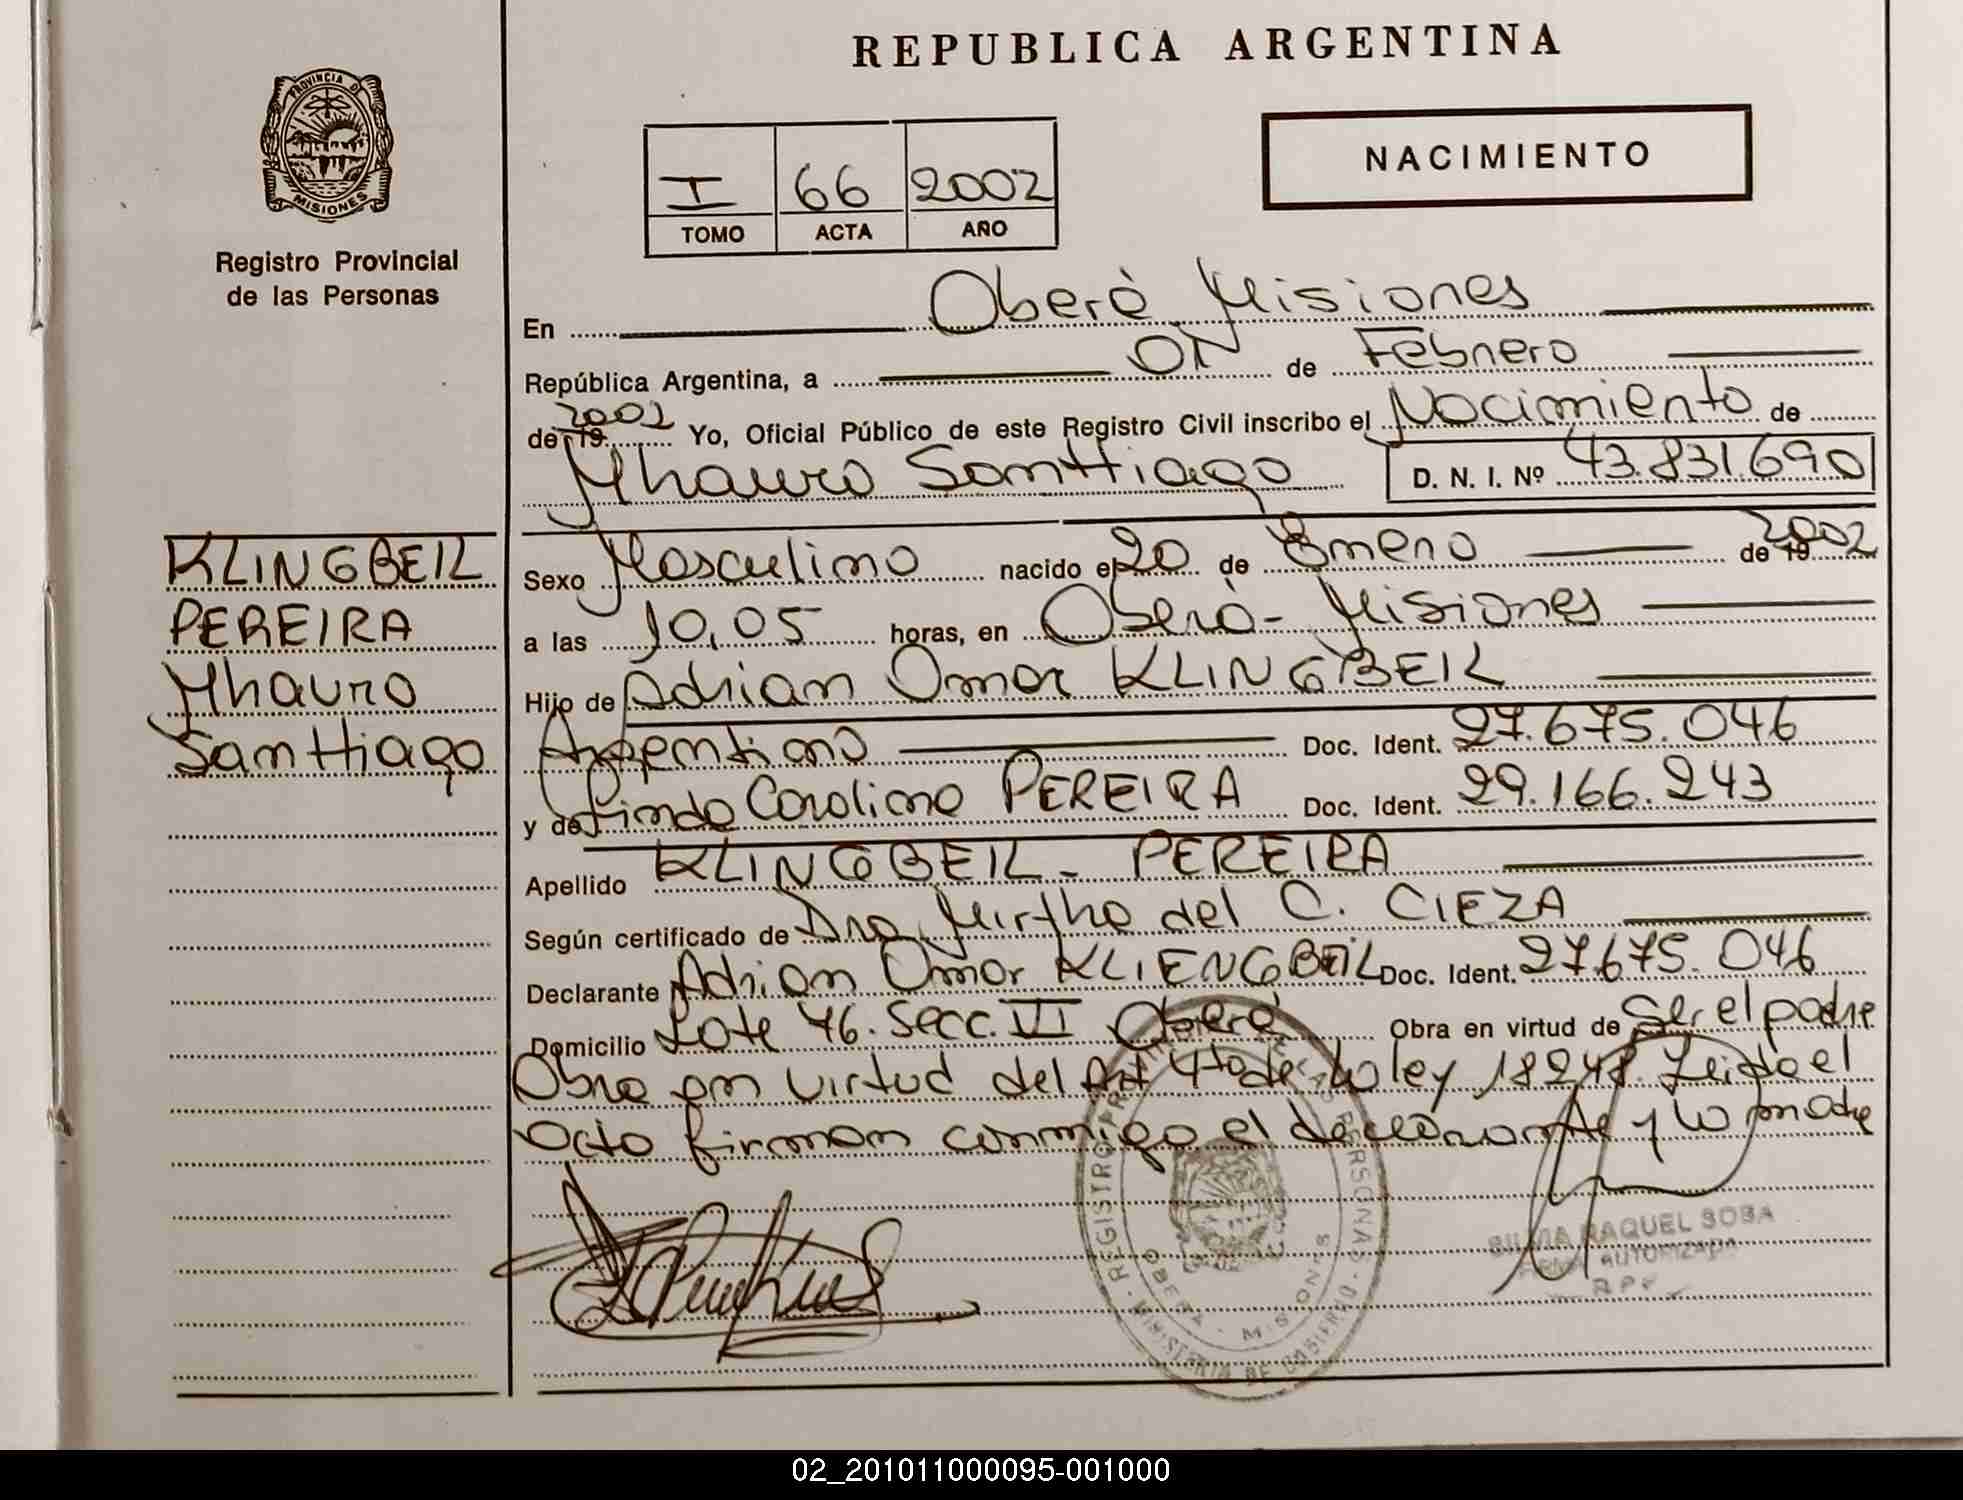 REPUBLICA ARGENTINA
PROVINCIA DE
MISIONES
Registro Provincial
de las Personas
I 66 2002
TOMO ACTA AÑO
NACIMIENTO
En Oberá Misiones
República Argentina, a 01 de Febrero
de 19 2002 Yo, Oficial Público de este Registro Civil inscribo el Nacimiento de
Mhauro Santtiago D. N. I. Nº 43.831.690
KLINGBEIL
PEREIRA
Mhauro
Santtiago
Sexo Masculino nacido el 20 de Enero de 19 2002
a las 10,05 horas, en Oberá - Misiones
Hijo de Adrian Omar KLINGBEIL
Argentino Doc. Ident. 27.675.046
y de Linda Carolina PEREIRA Doc. Ident. 29.166.243
Apellido KLINGBEIL - PEREIRA
Según certificado de Dra. Mirtha del C. CIEZA
Declarante Adrian Omar KLIENGBEIL Doc. Ident. 27.675.046
Domicilio Lote 46. Secc. VI Oberá Obra en virtud de Ser el padre
Obra en virtud del Art 4to de la ley 18248. Leida el
acta firman conmigo el declarante y la madre
REGISTRO PERSONAS
OBERA - MISIONES
MINISTERIO DE GOBIERNO
SILVIA RAQUEL SOSA
FIRMA AUTORIZADA
R.P.P.
02_201011000095-001000